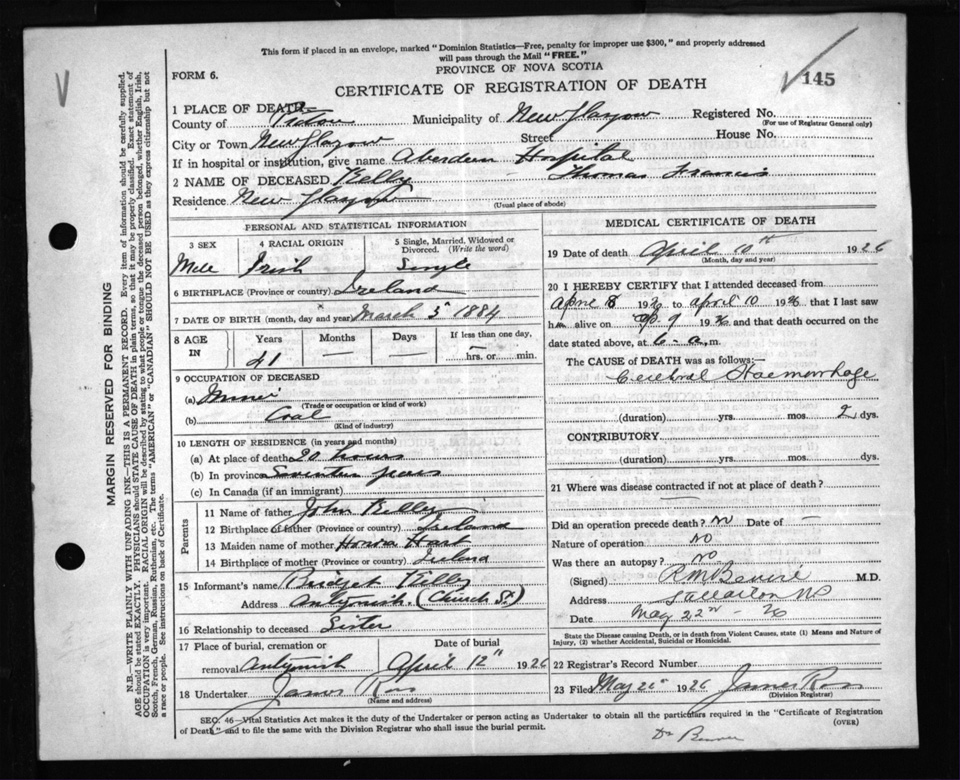 This form if placed in an envelope, marked "Dominion Statistics—Free, penalty for improper use $300," and properly addressed
will pass through the Mail "FREE."
PROVINCE OF NOVA SCOTIA
FORM 6.
CERTIFICATE OF REGISTRATION OF DEATH
145
1 PLACE OF DEATH—
County of Pictou Municipality of New Glasgow Registered No.
(For use of Registrar General only)
City or Town New Glasgow Street House No.
If in hospital or institution, give name Aberdeen Hospital
2 NAME OF DECEASED Kelly Thomas Francis
Residence New Glasgow
(Usual place of abode)
PERSONAL AND STATISTICAL INFORMATION
3 SEX 4 RACIAL ORIGIN 5 Single, Married, Widowed or Divorced. (Write the word)
Male Irish Single
6 BIRTHPLACE (Province or country) Ireland
7 DATE OF BIRTH (month, day and year) March 5 1884
8 AGE IN Years Months Days If less than one day,
41 — — hrs. or min.
9 OCCUPATION OF DECEASED
(a) Miner
(Trade or occupation or kind of work)
(b) Coal
(Kind of industry)
10 LENGTH OF RESIDENCE (in years and months)
(a) At place of death 20 hours
(b) In province Seventeen years
(c) In Canada (if an immigrant)
Parents
11 Name of father John Kelly
12 Birthplace of father (Province or country) Ireland
13 Maiden name of mother Honora Hart
14 Birthplace of mother (Province or country) Ireland
15 Informant's name Bridget Kelly
Address Antigonish (Church St.)
16 Relationship to deceased Sister
17 Place of burial, cremation or removal Antigonish Date of burial April 12" 1926
18 Undertaker James Ross
(Name and address)
MEDICAL CERTIFICATE OF DEATH
19 Date of death April 10th 1926
(Month, day and year)
20 I HEREBY CERTIFY that I attended deceased from
April 8 1926 to April 10 1926 that I last saw
him alive on Ap 9 1926 and that death occurred on the
date stated above, at 6- a.m.
The CAUSE of DEATH was as follows:—
Cerebral Haemorrhage
(duration) yrs. mos. 2 dys.
CONTRIBUTORY
(duration) yrs. mos. dys.
21 Where was disease contracted if not at place of death?
Did an operation precede death? No Date of —
Nature of operation No
Was there an autopsy? No
(Signed) M.D.
Address Stellarton NS
Date May 22nd - 26
State the Disease causing Death, or in death from Violent Causes, state (1) Means and Nature of
Injury, (2) whether Accidental, Suicidal or Homicidal.
22 Registrar's Record Number
23 Filed May 21st 1926 James Ross
(Division Registrar)
SEC. 46—Vital Statistics Act makes it the duty of the Undertaker or person acting as Undertaker to obtain all the particulars required in the "Certificate of Registration
of Death," and to file the same with the Division Registrar who shall issue the burial permit. (OVER)
MARGIN RESERVED FOR BINDING
N.B.—WRITE PLAINLY WITH UNFADING INK—THIS IS A PERMANENT RECORD. Every item of information should be carefully supplied.
AGE should be stated EXACTLY. PHYSICIANS should STATE CAUSE OF DEATH in plain terms, so that it may be properly classified. Exact statement of
OCCUPATION is very important. RACIAL ORIGIN will be described by stating to what people or tongue the deceased person belonged, whether English, Irish,
Scotch, French, German, Russian, Ruthenian, etc. The terms "AMERICAN" or "CANADIAN" SHOULD NOT BE USED as they express citizenship but not
a race or people. See instructions on back of Certificate.